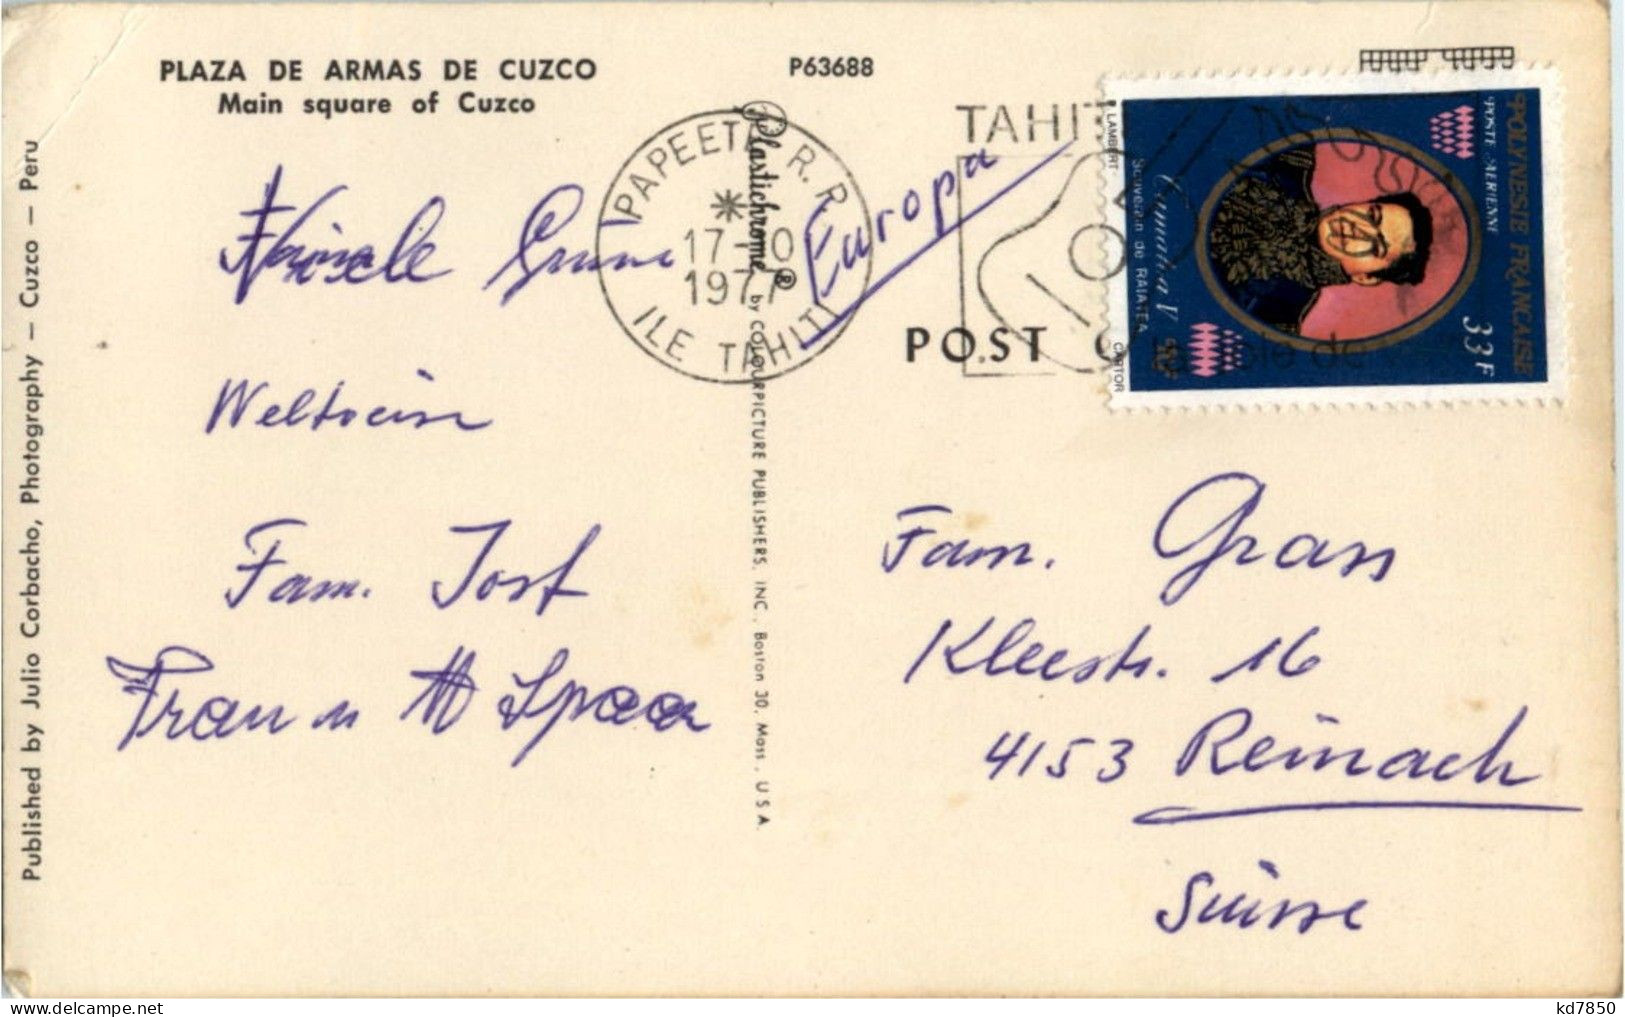 PLAZA DE ARMAS DE CUZCO
Main square of Cuzco
P63688
Published by Julio Corbacho, Photography — Cuzco — Peru
Plastichrome® by COLOURPICTURE PUBLISHERS, INC., Boston 30, Mass., U.S.A.
PAPEETE R. P.
17-10
1977
ILE TAHITI
TAHITI
POST
Europa
POLYNESIE FRANCAISE
POSTE AERIENNE
33F
Tamatoa V
Souverain de RAIATEA
LAMBERT
CARTOR
Fam. Jost
Fam. Grass
Kleestr. 16
4153 Reinach
Suisse
kd7850